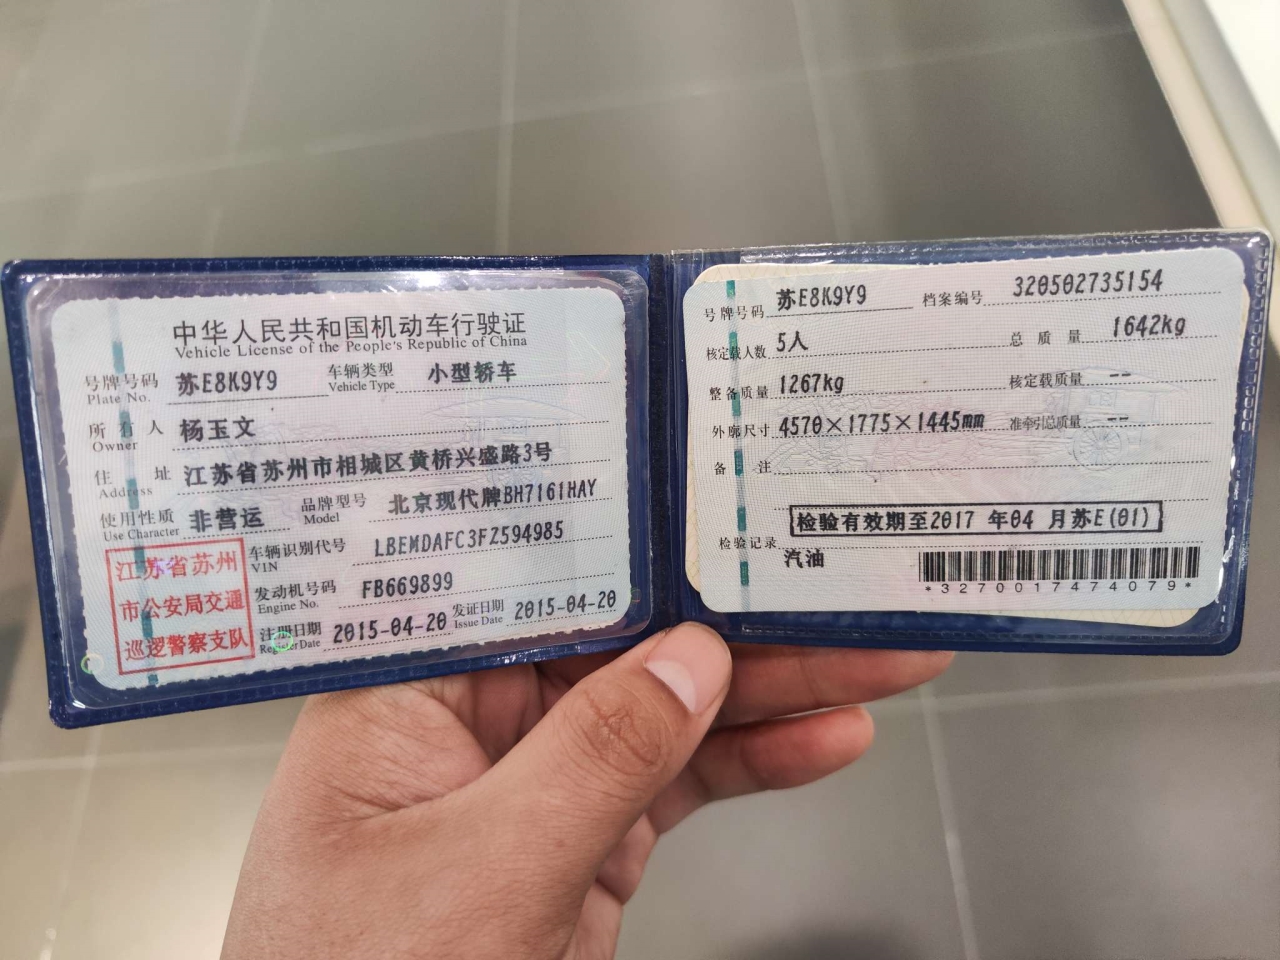 中华人民共和国机动车行驶证
Vehicle License of the People's Republic of China
号牌号码 苏E8K9Y9 车辆类型 小型轿车
Plate No. Vehicle Type
所有人 杨玉文
Owner
住址 江苏省苏州市相城区黄桥兴盛路3号
Address
使用性质 非营运 品牌型号 北京现代牌BH7161HAY
Use Character Model
江苏省苏州
市公安局交通
巡逻警察支队
车辆识别代号 LBEMDAFC3FZ594985
VIN
发动机号码 FB669899
Engine No.
注册日期 2015-04-20 发证日期 2015-04-20
Register Date Issue Date
号牌号码 苏E8K9Y9 档案编号 320502735154
核定载人数 5人 总质量 1642kg
整备质量 1267kg 核定载质量 --
外廓尺寸 4570×1775×1445mm 准牵引总质量 --
备注
检验有效期至2017 年04 月苏E(01)
检验记录
汽油
*3270017474079*